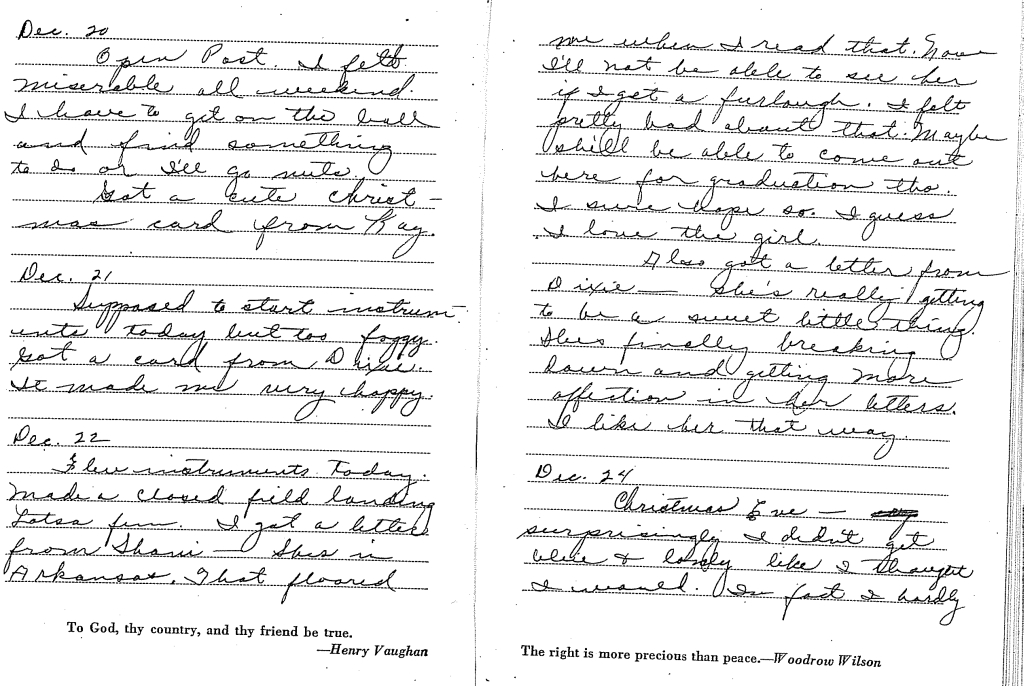 Dec. 20
Open Post. I felt
miserable all weekend.
I have to get on the ball
and find something
to do or I'll go nuts.
Got a cute Christ-
mas card from Kay.
Dec. 21
Supposed to start instrum-
ents today but too foggy.
Got a card from Dixie.
It made me very happy.
Dec. 22
Flew instruments today.
Made a closed field landing
Lotsa fun. I got a letter
from Shani — She's in
Arkansas. That floored
To God, thy country, and thy friend be true.
—Henry Vaughan
me when I read that. Now
I'll not be able to see her
if I get a furlough. I felt
pretty bad about that. Maybe
she'll be able to come out
here for graduation tho.
I sure hope so. I guess
I love the girl.
Also got a letter from
Dixie — She's really getting
to be a sweet little thing.
She's finally breaking
down and getting more
affection in her letters.
I like her that way.
Dec. 24
Christmas Eve —
surprisingly I didn't get
blue & lonely like I thought
I would. In fact I hardly
The right is more precious than peace.—Woodrow Wilson